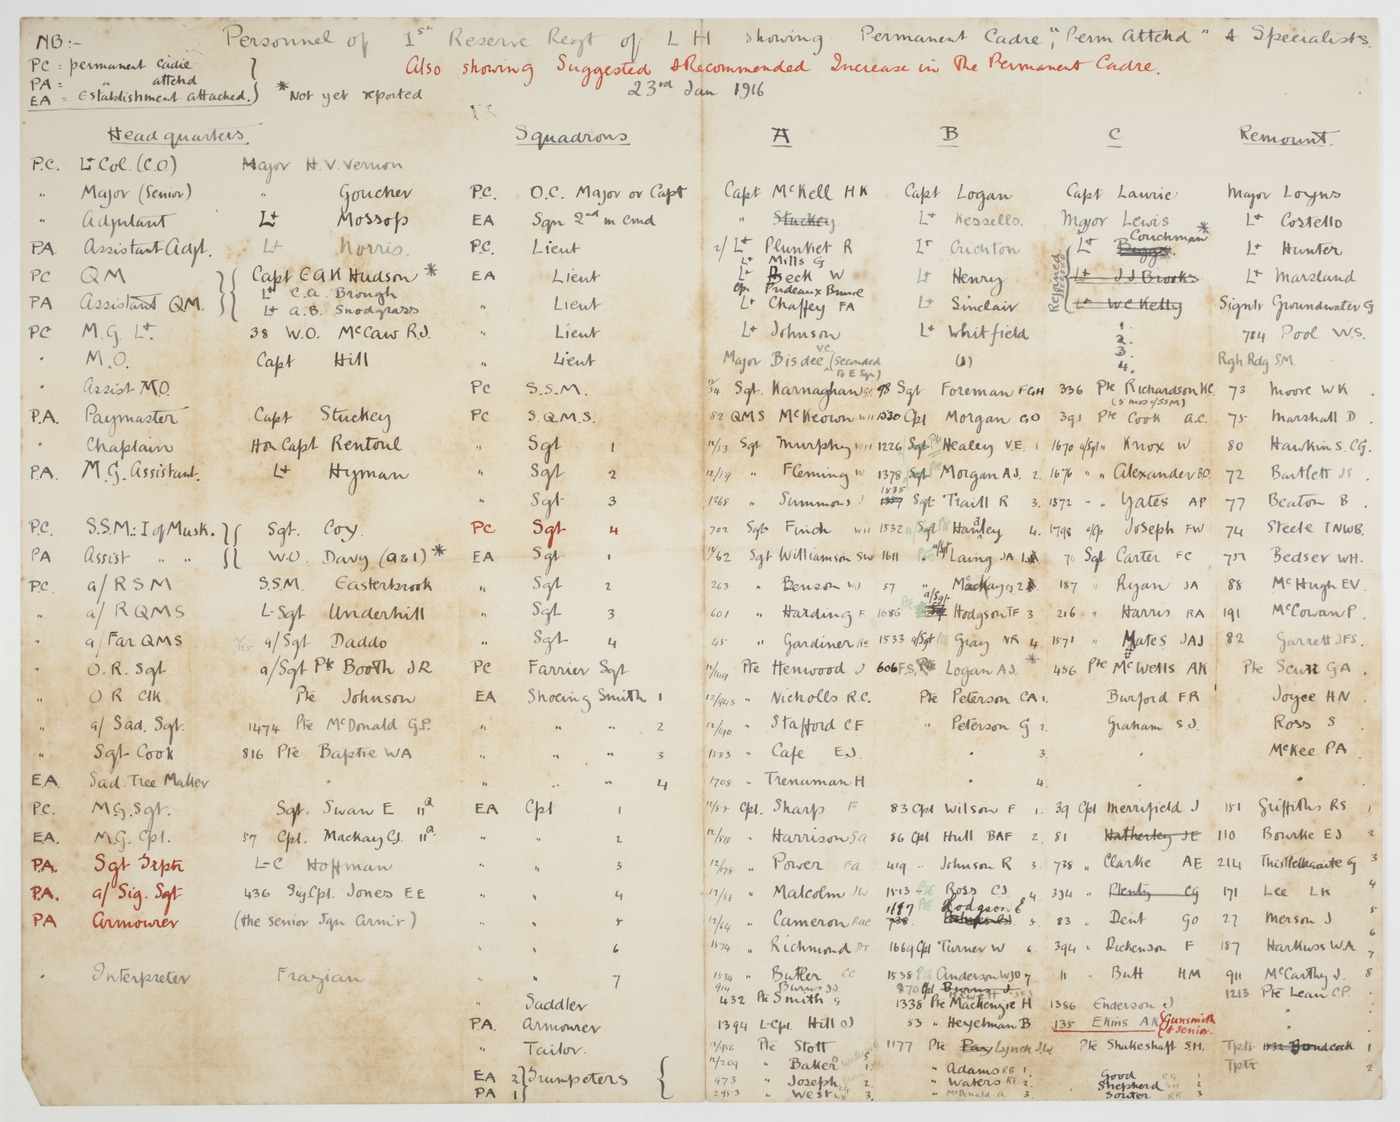 NB:- Personnel of 1st Reserve Regt of L H showing Permanent Cadre, "Perm Attchd" & Specialists.
PC = permanent cadre
PA = " attchd
EA = Establishment attached. *Not yet reported
Also showing Suggested & Recommended Increase in the Permanent Cadre.
23rd Jan 1916
Headquarters. Squadrons A B C Remount.
P.C. Lt Col. (C.O) Major H.V. Vernon
" Major (Senior) " Goucher P.C. O.C. Major or Capt Capt McKell H K Capt Logan Capt Laurie Major Loyns
" Adjutant Lt Mossop EA Sqn 2nd in Cmd " Stuckey Lt Kessells. Major Lewis Lt Costello
PA. Assistant Adjt. Lt Norris. P.C. Lieut 2/Lt Plunket R Lt Crichton Lt Couchman * Lt Hunter
Lt Mills G
PC QM Capt E A K Hudson * EA Lieut Lt Beck W Lt Henry Rejoined Lt J J Brooks Lt Marsland
Lt C.A. Brough
PA Assistant QM. Lt A.B. Snodgrass " Lieut Lt Chaffey FA Lt Sinclair Lt W C Kelly Signlr Groundwater G
PC M.G. Lt. 38 W.O. McCaw R.J. " Lieut Lt Johnson Lt Whitfield 1. 2. 784 Pool W.S.
" M.O. Capt Hill " Lieut Major Bisdee V.C. (Seconded to E Sqn) 3. 4. Rgh Rdg SM
" Assist M.O. PC S.S.M. Sgt. Karnaghan 98 Sgt Foreman FGH 336 Pte Richardson KC 73 Moore W K
(5 mos a/SSM)
P.A. Paymaster Capt Stuckey PC S.Q.M.S. 82 QMS McKeown WH 1530 Cpl Morgan GO 391 Pte Cook A.C. 75 Marshall D.
" Chaplain Hon Capt Rentoul " Sgt 1 Sgt Murphy WH 1226 Sgt Healey V.E. 1. 1670 a/Sgt Knox W 80 Hawkins C.G.
P.A. M.G. Assistant. Lt Hyman " Sgt 2 " Fleming W 1378 Sgt Morgan A.J. 2. 1676 " " Alexander BD. 72 Bartlett JS
" Sgt 3 1268 " Simmons J 1535 Sgt Traill R 3. 1572 " " Yates AP 77 Beaton B
P.C. S.S.M.: I of Musk. Sgt. Cox. PC Sgt 4 702 Sgt Finch WH 1532 a/Sgt Hanley 4. 1798 a/Cp Joseph FW 74 Steele TNWB.
PA Assist " " W.O. Davy (Q & I) * EA Sgt 1 Sgt Williamson SW 1611 a/Sgt Laing JA 1. 70 Sgt Carter FC 751 Bedser WH.
PC. a/ R S M S.S.M. Easterbrook " Sgt 2 263 " Benson WJ 57 " Mackay 2 187 " Ryan JA 88 McHugh EV.
" a/ R Q M S L-Sgt Underhill " Sgt 3 601 " Harding F 1686 a/Sgt. Hodgson TF 3 216 " Harris RA 191 McCowan P.
" a/ Far QMS a/Sgt Daddo " Sgt 4 45 " Gardiner 1533 a/Sgt Gray NR 4 1571 " Mates JAJ 82 Garrett JFS.
" O.R. Sgt a/Sgt Pte Booth J R PC Farrier Sgt Pte Henwood J 606 F.S. Logan A.J. * 456 Pte McWells AK Pte Scurr G A
" O R Clk Pte Johnson EA Shoeing Smith 1 12/943 " Nicholls R.C. Pte Peterson CA 1. Burford F R Joyce H N
" a/ Sad. Sgt. 1474 Pte McDonald G.P. " " " 2 12/190 " Stafford C F " Peterson G 2. Graham S J. Ross S
" Sgt-Cook 816 Pte Baptie WA " " " 3 1583 " Cafe E.J. " 3. " McKee P A
EA. Sad. Tree Maker " " " " 4 1708 " Trenuman H 4.
PC. M.G. Sgt. Sgt. Swan E 11a EA Cpl 1 Cpl. Sharp F 83 Cpl Wilson F 1. 39 Cpl Merrifield J 151 Griffiths RS 1
EA. M.G. Cpl. 57 Cpl. Mackay CJ 11a. " " 2 " Harrison 86 Cpl Hull BAF 2. 81 Hatherley JE 110 Bourke EJ 2
P.A. Sgt Trptr L-C Hoffman " " 3 " Power Fa 419 " Johnson R 3. 738 " Clarke AE 214 Thistlethwaite G 3
P.A. a/ Sig. Sgt 436 Sig Cpl. Jones E E " " 4 " Malcolm JW 1513 Pte Ross CJ 4 334 " Plenty CG 171 Lee LK 4
PA Armourer (the senior Sqn Armr) " " 5 " Cameron Rae 1187 Pte Hodgson E 5. 83 " Dent GO 27 Merson J 5
" " 6 1574 " Richmond DT 1669 Cpl Turner W 6. 394 " Dickenson F 187 Harkuss WA 6 7
" Interpreter Frazian " " 7 1534 " Butler CC 1538 Pte Anderson WJD 7 11 " Butt HM 911 McCarthy J. 8
914 Burns JJ 870 Cpl Burns J. 1213 Pte Lean C.P.
" Saddler 432 Pte Smith G 1338 Pte Mackenzie H 1386 Enderson J
P.A. Armourer 1394 L-Cpl. Hill J 53 " Heyelman B 135 Ekins A K Gunsmith & senior.
" Tailor. Pte Stott 1177 Pte Pay Lynch Pte Shakeshaft S.H. Tptr 1
12/209 " Baker 1. Tptr 2
EA 2 Trumpeters 973 " Joseph 2. " Adams RB 1. Good CG 1
PA 1 2953 " West 3. " Waters RT 2. Shepherd 2
" McDonald A 3. Souter RR 3